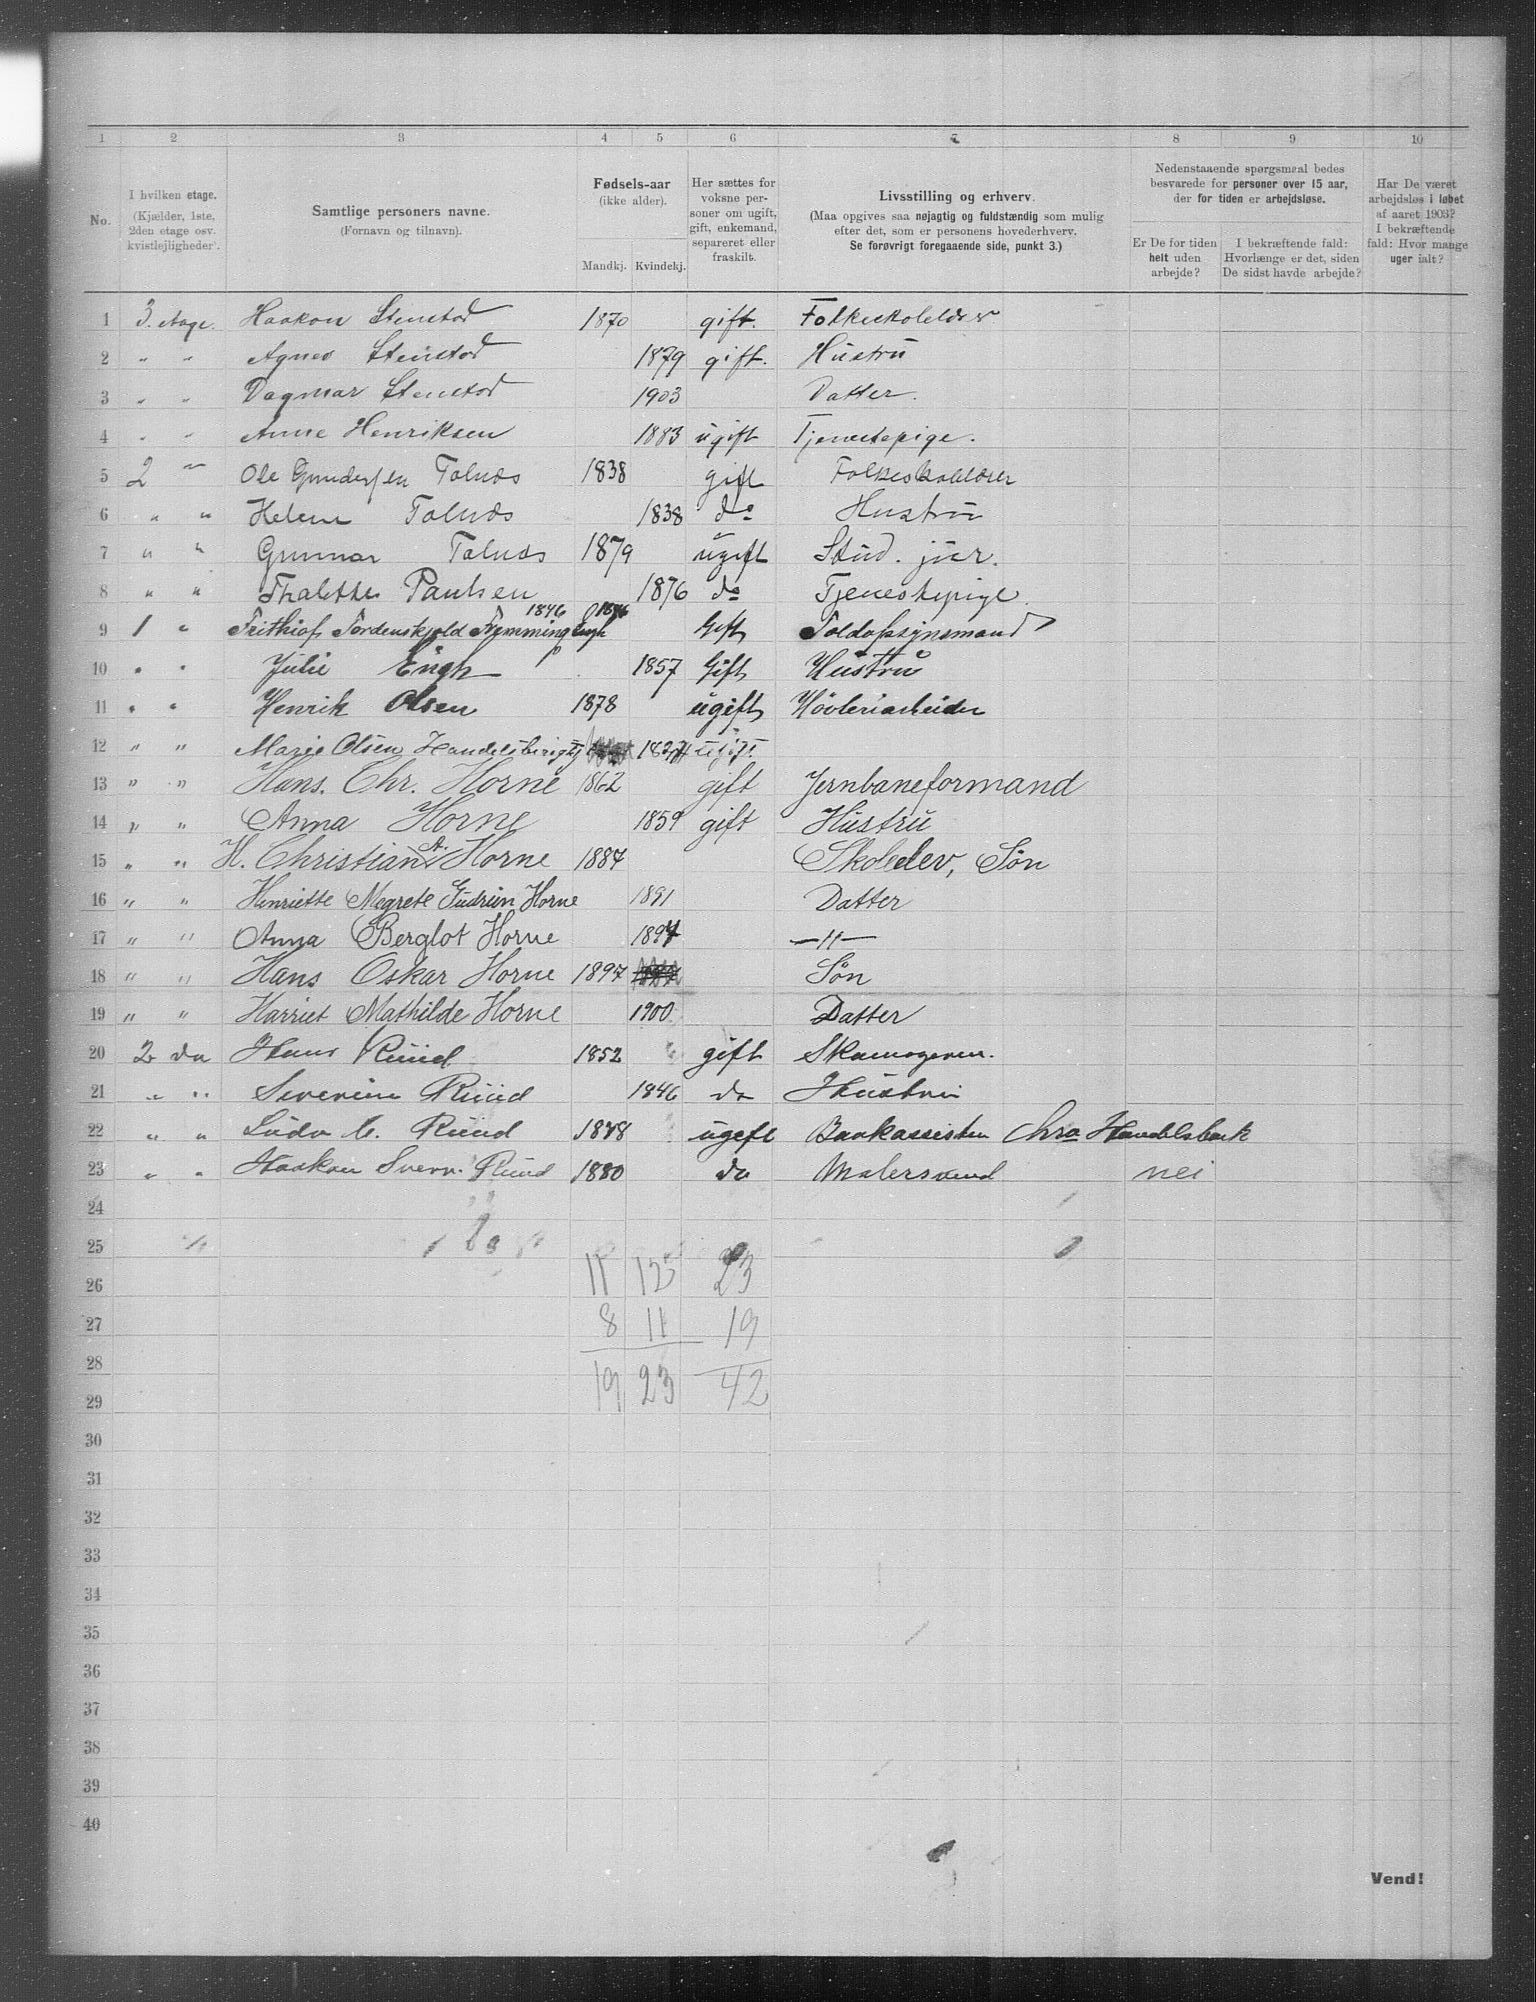 1 2 3 4 5 6 7 8 9 10
No.
I hvilken etage. (Kjælder, 1ste, 2den etage osv. kvistlejligheder).
Samtlige personers navne. (Fornavn og tilnavn).
Fødsels-aar (ikke alder). Mandkj. Kvindekj.
Her sættes for voksne personer om ugift, gift, enkemand, separeret eller fraskilt.
Livsstilling og erhverv. (Maa opgives saa nøjagtig og fuldstændig som mulig efter det, som er personens hovederhverv. Se forøvrigt foregaaende side, punkt 3.)
Nedenstaaende spørgsmaal bedes besvarede for personer over 15 aar, der for tiden er arbejdsløse.
Er De for tiden helt uden arbejde?
I bekræftende fald: Hvorlænge er det, siden De sidst havde arbejde?
Har De været arbejdsløs i løbet af aaret 1903? I bekræftende fald: Hvor mange uger ialt?
1 3. etage. Haakon Stenstad 1870 gift. Folkeskolelærer
2 " " Agnes Stenstad 1879 gift. Hustru
3 " " Dagmar Stenstad 1903 Datter.
4 " " Anne Henriksen 1883 ugift Tjenestepige.
5 2 " Ole Gundersen Tolnæs 1838 gift Folkeskolelærer
6 " " Helene Tolnæs 1838 do Hustru
7 " " Gunnar Tolnæs 1879 ugift Stud. jur.
8 " " Thalette Paulsen 1876 do Tjenestepige.
9 1 " Frithiof Tordenskjold Flemming Engh 1846 1846 Gift Toldopsynsmand
10 " " Julie Engh 1857 Gift Hustru
11 " " Henrik Olsen 1878 ugift Høvleriarbeider
12 " " Marie Olsen Handelsberigtg ugift.
13 " " Hans. Chr. Horne 1862 gift Jernbaneformand
14 " " Anna Horne 1859 gift Hustru
15 " " H. Christian A. Horne 1887 Skoleelev, Søn
16 " " Henriette Megrete Gudrun Horne 1891 Datter
17 " " Anna Berglot Horne 1894 —"—
18 " " Hans Oskar Horne 1897 Søn
19 " " Harriet Mathilde Horne 1900 Datter
20 2 do Hans Ruud 1852 gift Skomagerm.
21 " " Severine Ruud 1846 do Hustru
22 " " Ludv C. Ruud 1878 ugift Bankassistent Chra Handelsbank
23 " " Haakon Sverr. Ruud 1880 do Malersvend nei
24
25
26 11 12 23
27 8 11 19
28
29 19 23 42
30
31
32
33
34
35
36
37
38
39
40
Vend!